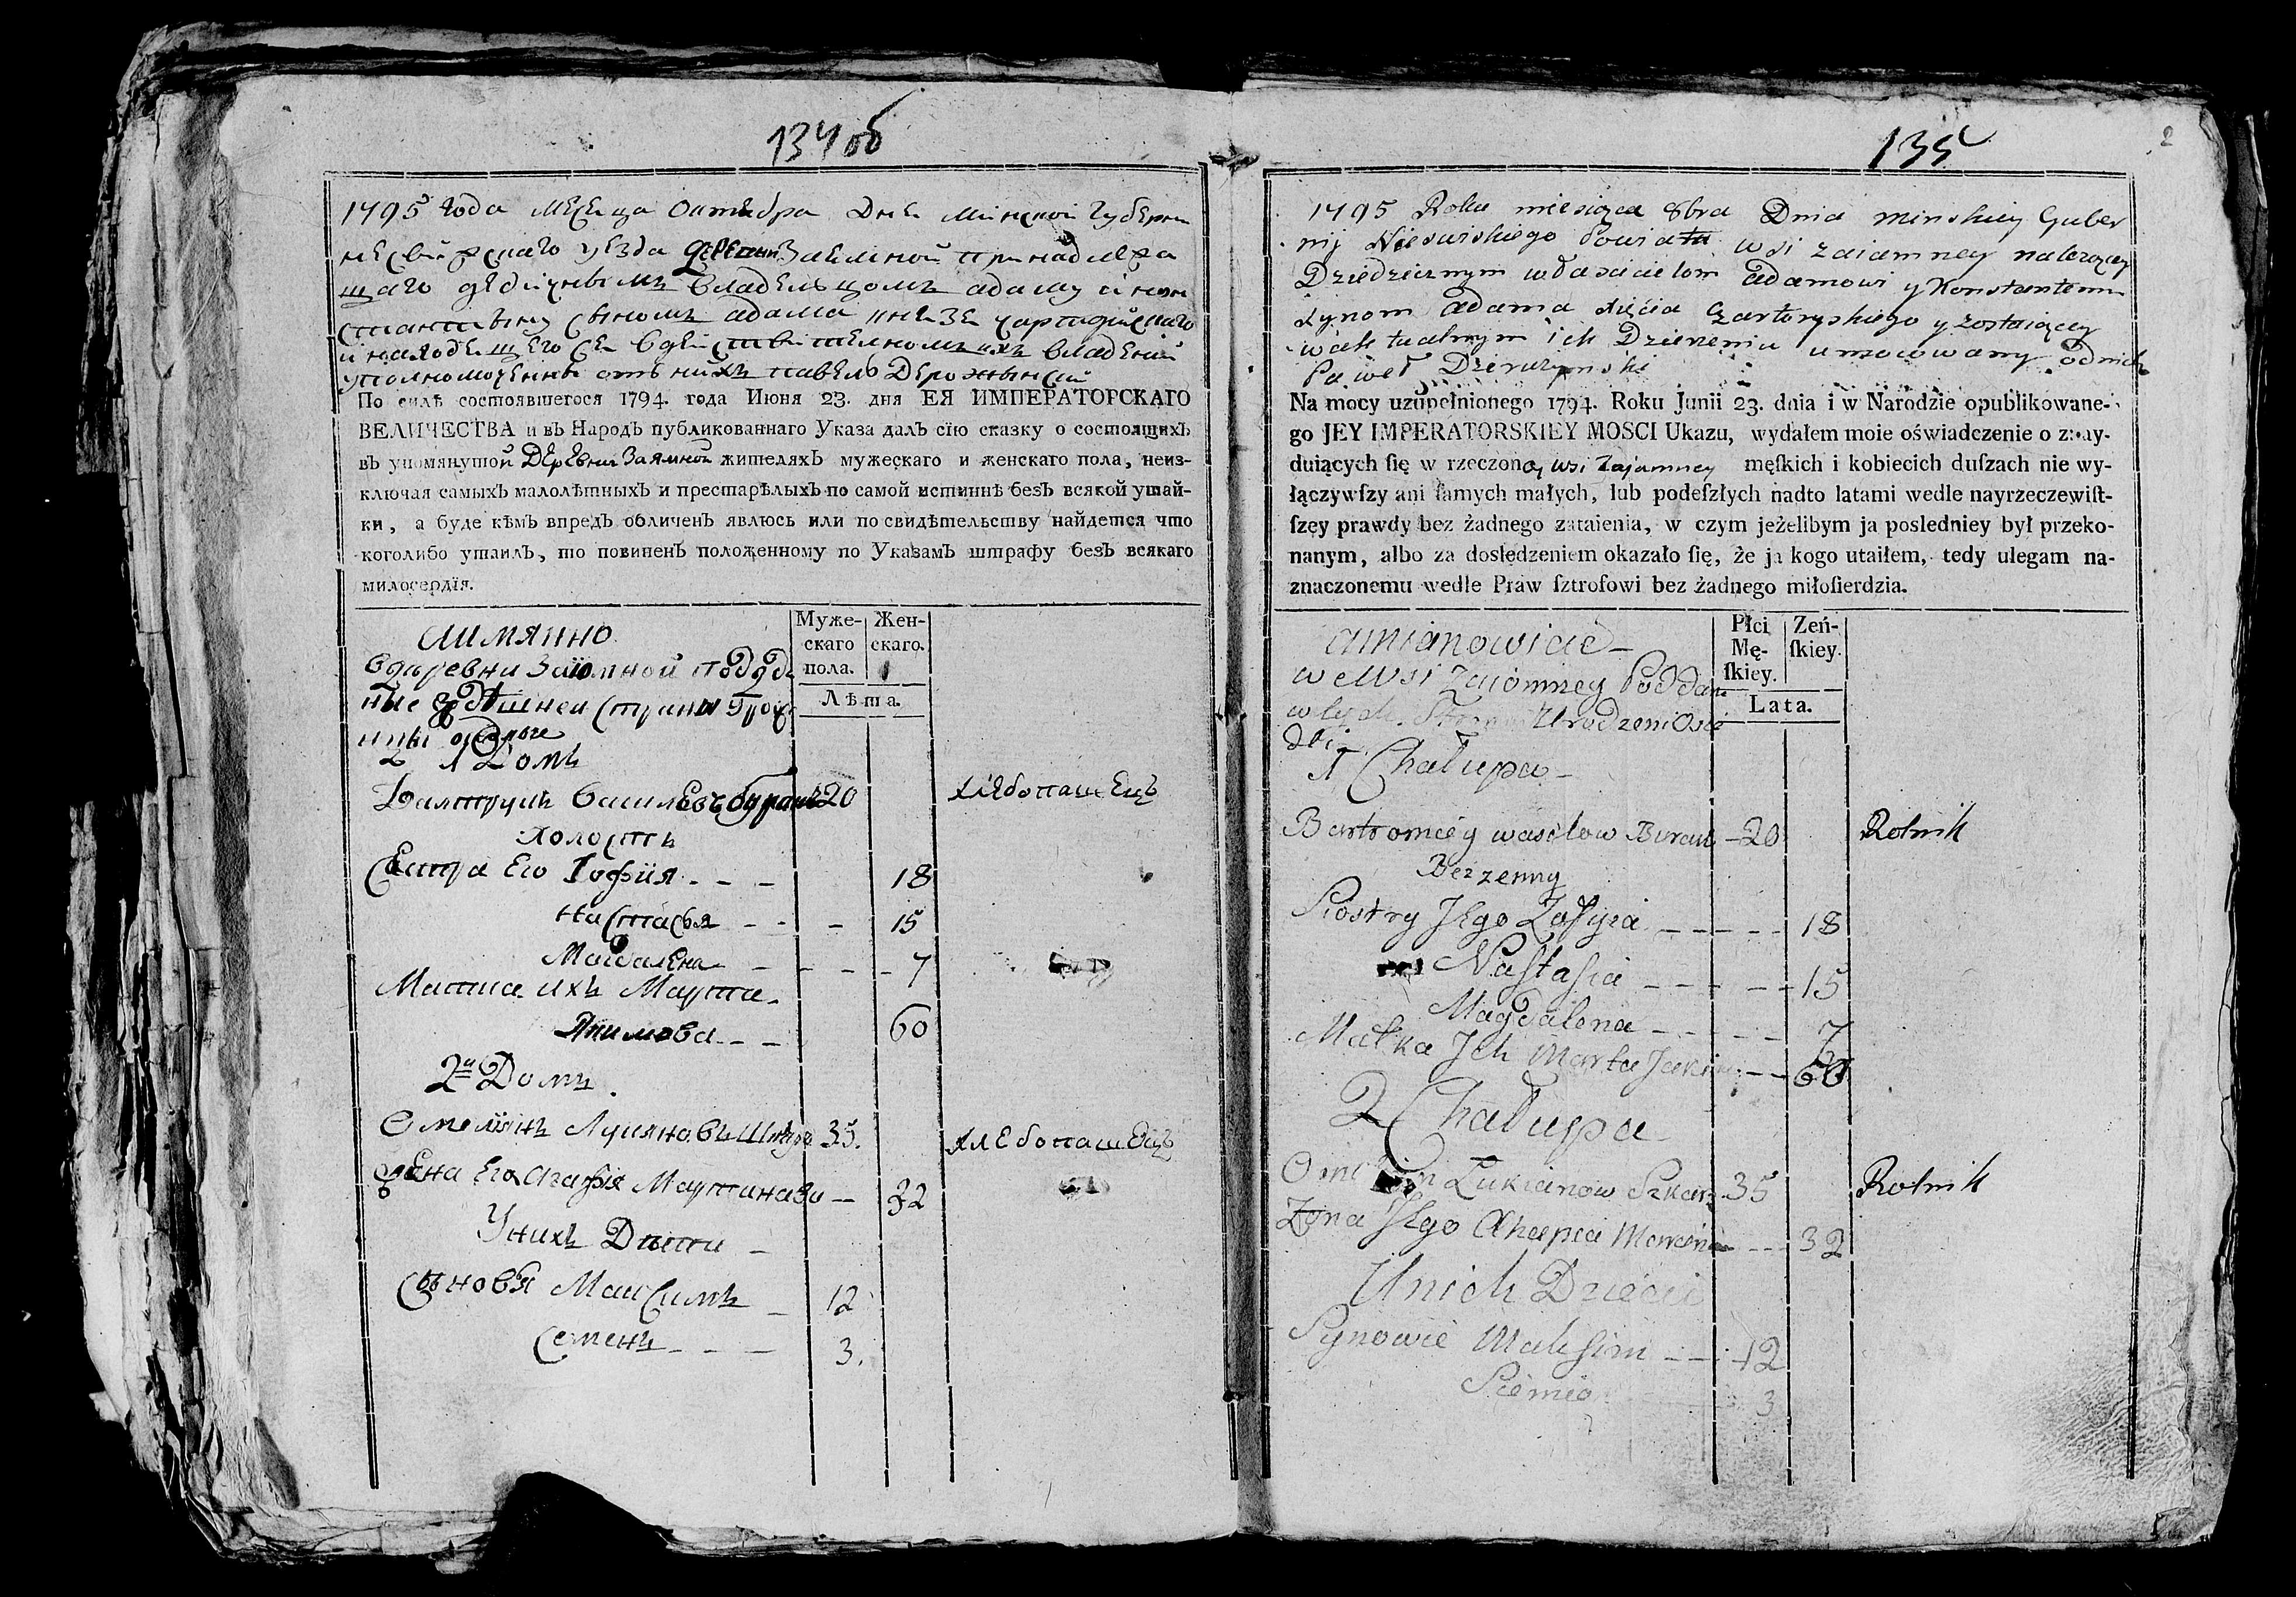 134об
1795 года месеца Октебра Дне Минской губерни
несвижскаго уезда деревни Заемной принадлежа
щаго дедичнымъ владельцомъ адаму и кон
стантыну сыномъ адама кнезе чарторийскаго
и находещегосе вдействительномъ ихъ владении
уполномоченны отъ нихъ павелъ Держинский
По силѣ состоявшегося 1794. года Июня 23. дня ЕЯ ИМПЕРАТОРСКАГО
ВЕЛИЧЕСТВА и въ Народъ публикованнаго Указа далъ сїю сказку о состоящихъ
въ упомянутой Деревни Заямной жителяхъ мужескаго и женскаго пола, неиз-
ключая самыхъ малолѣтныхъ и престарѣлыхъ по самой истиннѣ безъ всякой утай-
ки, а буде кѣмъ впредь обличенъ явлюсь или по свидѣтельству найдется что
коголибо утаилъ, то повиненъ положенному по Указамъ штрафу безъ всякаго
милосердїя.
Муже- Жен-
скаго скаго.
пола.
Лѣта.
аимянно
вдеревни Заiомной подда
ные
1 Домъ
Балтруцъ василевъ буракъ 20 хлебопашецъ
холостъ
Сестра Его Зофия - - - 18
Настасья - - - 15
Магдалена - - - 7
Матка ихъ Марта
Якимова - - 60
2й Домъ
Омелянъ Лукяновъ 35. хлебопашецъ
жена Его Агафия Мартинова - 32
Унихъ Дети -
Сыновя Максимъ - 12
Семенъ - - - 3.
135
2
1795 Roku miesiąca 8bra Dnia minskiey Guber
nij Nieswiskiego Powiatu wsi zaiamney należącey
Dziedzicznym włascicielom adamowi y Konstantemu
synom adama xięcia Czartoryskiego y zostaiącey
w aktualnym ich Dzierzeniu umocowany od nich
Paweł Dzierzynski
Na mocy uzupełnionego 1794. Roku Junii 23. dnia i w Narodzie opublikowane-
go JEY IMPERATORSKIEY MOSCI Ukazu, wydałem moie oświadczenie o znay-
duiących ſię w rzeczoney wsi Zajamney męſkich i kobiecich duſzach nie wy-
łączywſzy ani ſamych małych, lub podeſzłych nadto latami wedle nayrzeczewiſt-
ſzey prawdy bez żadnego zataienia, w czym jeżelibym ja posledniey był przeko-
nanym, albo za dosledzeniem okazało ſię, że ja kogo utaiłem, tedy ulegam na-
znaczonemu wedle Praw ſztrofowi bez żadnego miłoſierdzia.
Płci Zeń-
Mę- ſkiey.
ſkiey.
Lata.
amianowicie
we wsi Zaiomney Poddani
w tych Urodzeni
1 Chałupa
Bartomiey wasilow Burak - 20 Rolnik
Bezzenny
Siostry Jego Zofyia - - - 18
Nastasia - - - 15
Magdalena - - - 7
Matka Ich Marta - - 60
2 Chałupa
Łukianow 35 Rolnik
Zona Jego Ahapia - - 32
Unich Dzieci
Synowie Maksim - - 12
Siemio 3